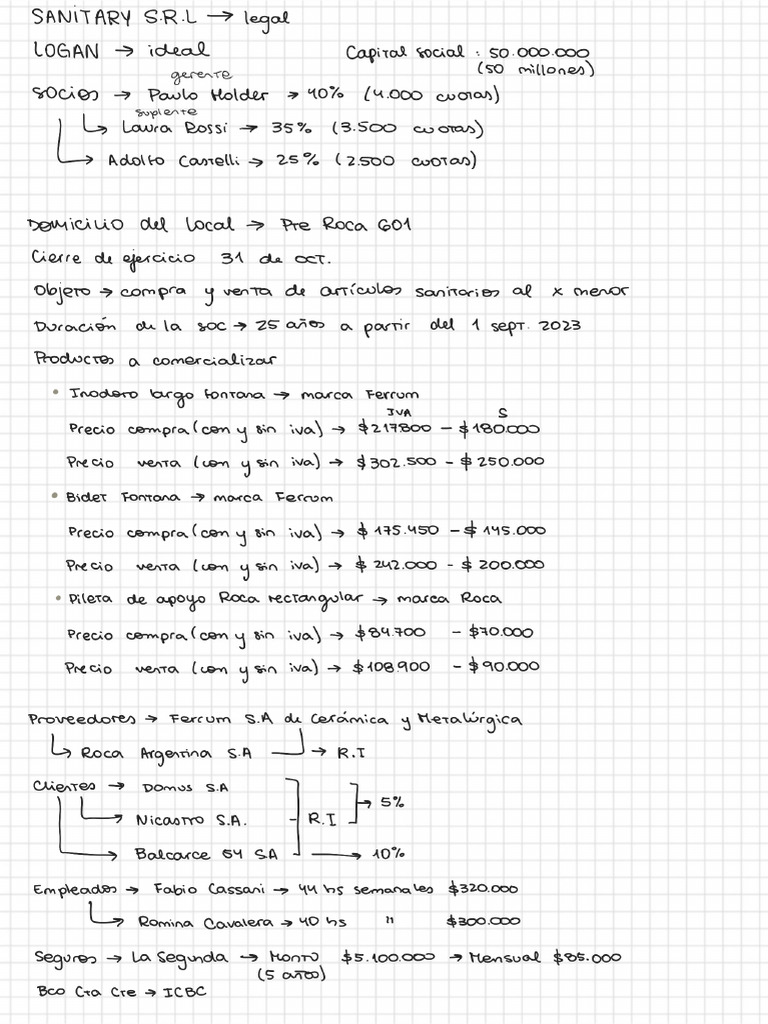 SANITARY S.R.L → legal
LOGAN → ideal
Capital social : 50.000.000
(50 millones)
gerente
socios → Paulo Holder → 40% (4.000 cuotas)
suplente
Laura Rossi → 35% (3.500 cuotas)
Adolfo Castelli → 25% (2.500 cuotas)
Domicilio del local → Pte Roca 601
Cierre de ejercicio 31 de OCT.
Objeto → compra y venta de artículos sanitarios al x menor
Duración de la soc → 25 años a partir del 1 sept. 2023
Productos a comercializar
• Inodoro largo fontana → marca Ferrum
IVA S
Precio compra (con y sin iva) → $217800 - $180.000
Precio venta (con y sin iva) → $302.500 - $250.000
• Bidet Fontana → marca Ferrum
Precio compra (con y sin iva) → $175.450 - $145.000
Precio venta (con y sin iva) → $242.000 - $200.000
• Pileta de apoyo Roca rectangular → marca Roca
Precio compra (con y sin iva) → $84.700 - $70.000
Precio venta (con y sin iva) → $108900 - $90.000
Proveedores → Ferrum S.A de Cerámica y Metalúrgica
Roca Argentina S.A → R.I
Clientes → Domus S.A
→ 5%
Nicastro S.A. - R.I
Balcarce 54 SA → 10%
Empleados → Fabio Cassani → 44 hs semanales $320.000
Romina Cavalera → 40 hs " $300.000
Seguros → La Segunda → Monto $5.100.000 → Mensual $85.000
(5 años)
Bco Cta Cte → ICBC